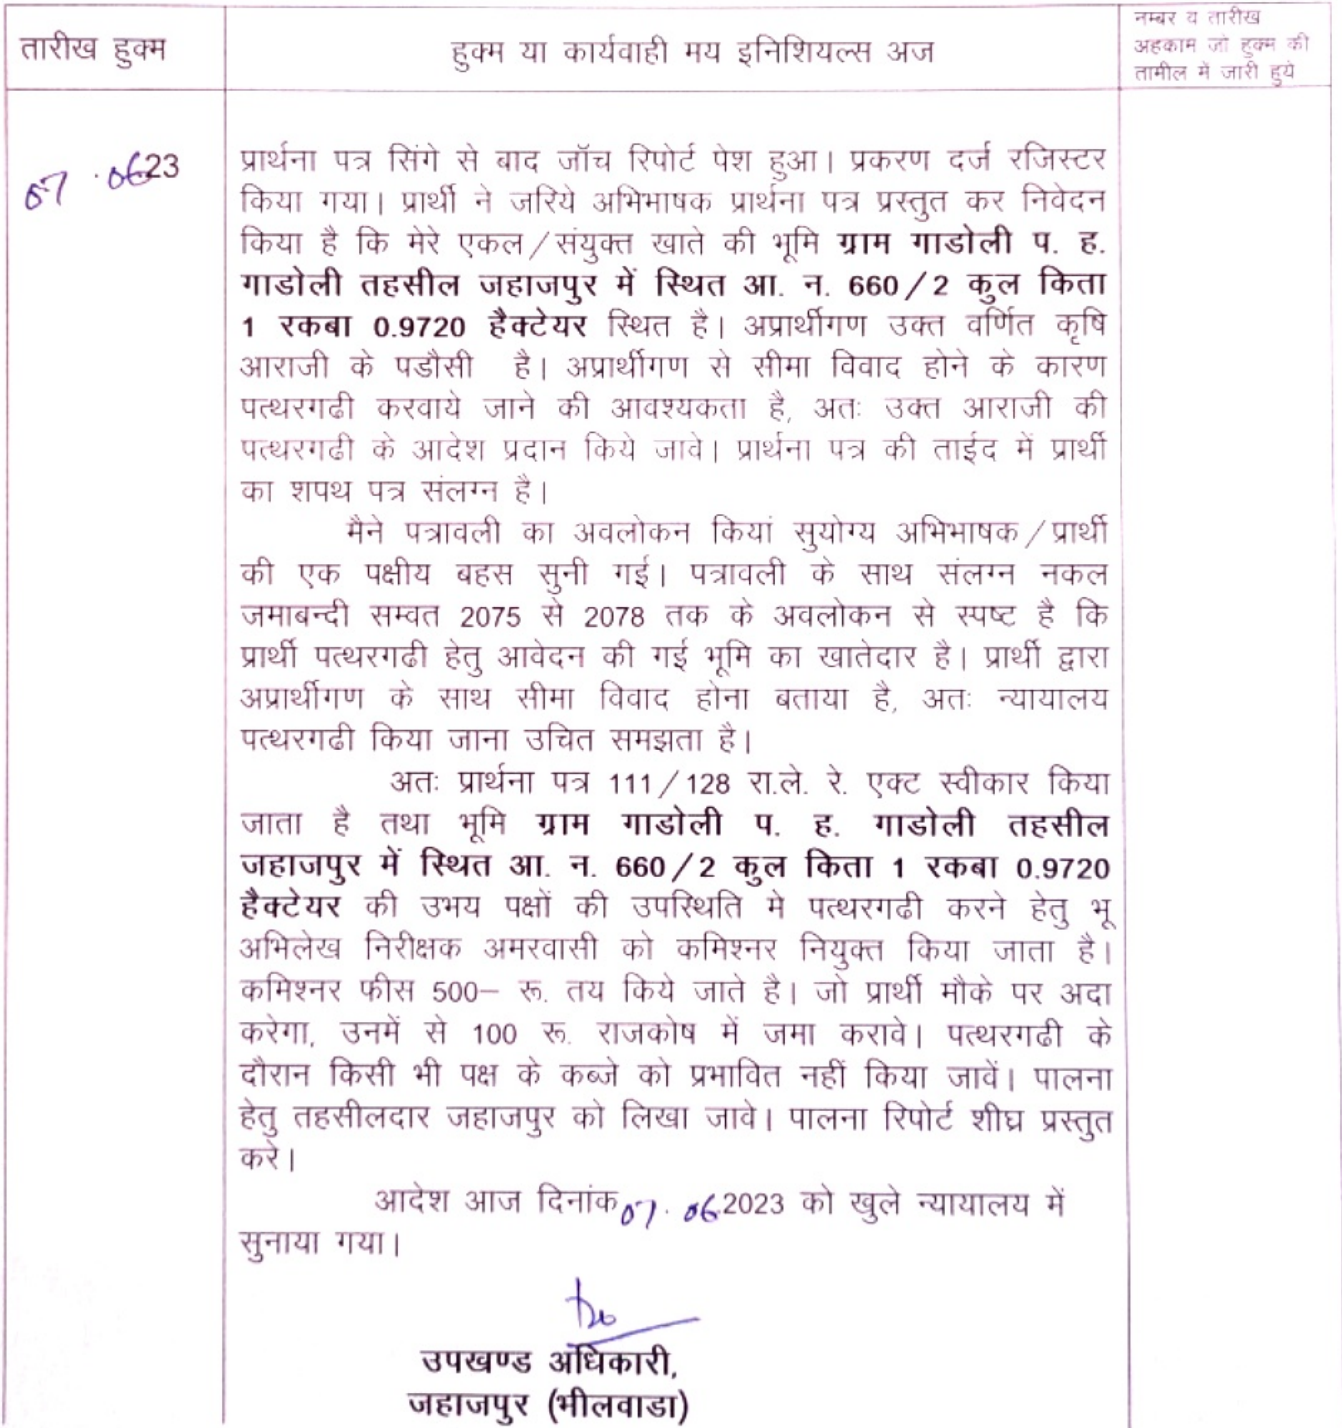 तारीख हुक्म
हुक्म या कार्यवाही मय इनिशियल्स अज
नम्बर व तारीख
अहकाम जो हुक्म की
तामील में जारी हुये
07.0623
प्रार्थना पत्र सिंगे से बाद जॉच रिपोर्ट पेश हुआ। प्रकरण दर्ज रजिस्टर
किया गया। प्रार्थी ने जरिये अभिभाषक प्रार्थना पत्र प्रस्तुत कर निवेदन
किया है कि मेरे एकल/संयुक्त खाते की भूमि ग्राम गाडोली प. ह.
गाडोली तहसील जहाजपुर में स्थित आ. न. 660/2 कुल किता
1 रकबा 0.9720 हैक्टेयर स्थित है। अप्रार्थीगण उक्त वर्णित कृषि
आराजी के पडौसी है। अप्रार्थीगण से सीमा विवाद होने के कारण
पत्थरगढी करवाये जाने की आवश्यकता है, अतः उक्त आराजी की
पत्थरगढी के आदेश प्रदान किये जावे। प्रार्थना पत्र की ताईद में प्रार्थी
का शपथ पत्र संलग्न है।
मैने पत्रावली का अवलोकन कियां सुयोग्य अभिभाषक/प्रार्थी
की एक पक्षीय बहस सुनी गई। पत्रावली के साथ संलग्न नकल
जमाबन्दी सम्वत 2075 से 2078 तक के अवलोकन से स्पष्ट है कि
प्रार्थी पत्थरगढी हेतु आवेदन की गई भूमि का खातेदार है। प्रार्थी द्वारा
अप्रार्थीगण के साथ सीमा विवाद होना बताया है, अतः न्यायालय
पत्थरगढी किया जाना उचित समझता है।
अतः प्रार्थना पत्र 111/128 रा.ले. रे. एक्ट स्वीकार किया
जाता है तथा भूमि ग्राम गाडोली प. ह. गाडोली तहसील
जहाजपुर में स्थित आ. न. 660/2 कुल किता 1 रकबा 0.9720
हैक्टेयर की उभय पक्षों की उपस्थिति मे पत्थरगढी करने हेतु भू
अभिलेख निरीक्षक अमरवासी को कमिश्नर नियुक्त किया जाता है।
कमिश्नर फीस 500– रू. तय किये जाते है। जो प्रार्थी मौके पर अदा
करेगा, उनमें से 100 रू. राजकोष में जमा करावे। पत्थरगढी के
दौरान किसी भी पक्ष के कब्जे को प्रभावित नहीं किया जावें। पालना
हेतु तहसीलदार जहाजपुर को लिखा जावे। पालना रिपोर्ट शीघ्र प्रस्तुत
करे।
आदेश आज दिनांक 07.06.2023 को खुले न्यायालय में
सुनाया गया।
उपखण्ड अधिकारी,
जहाजपुर (भीलवाडा)